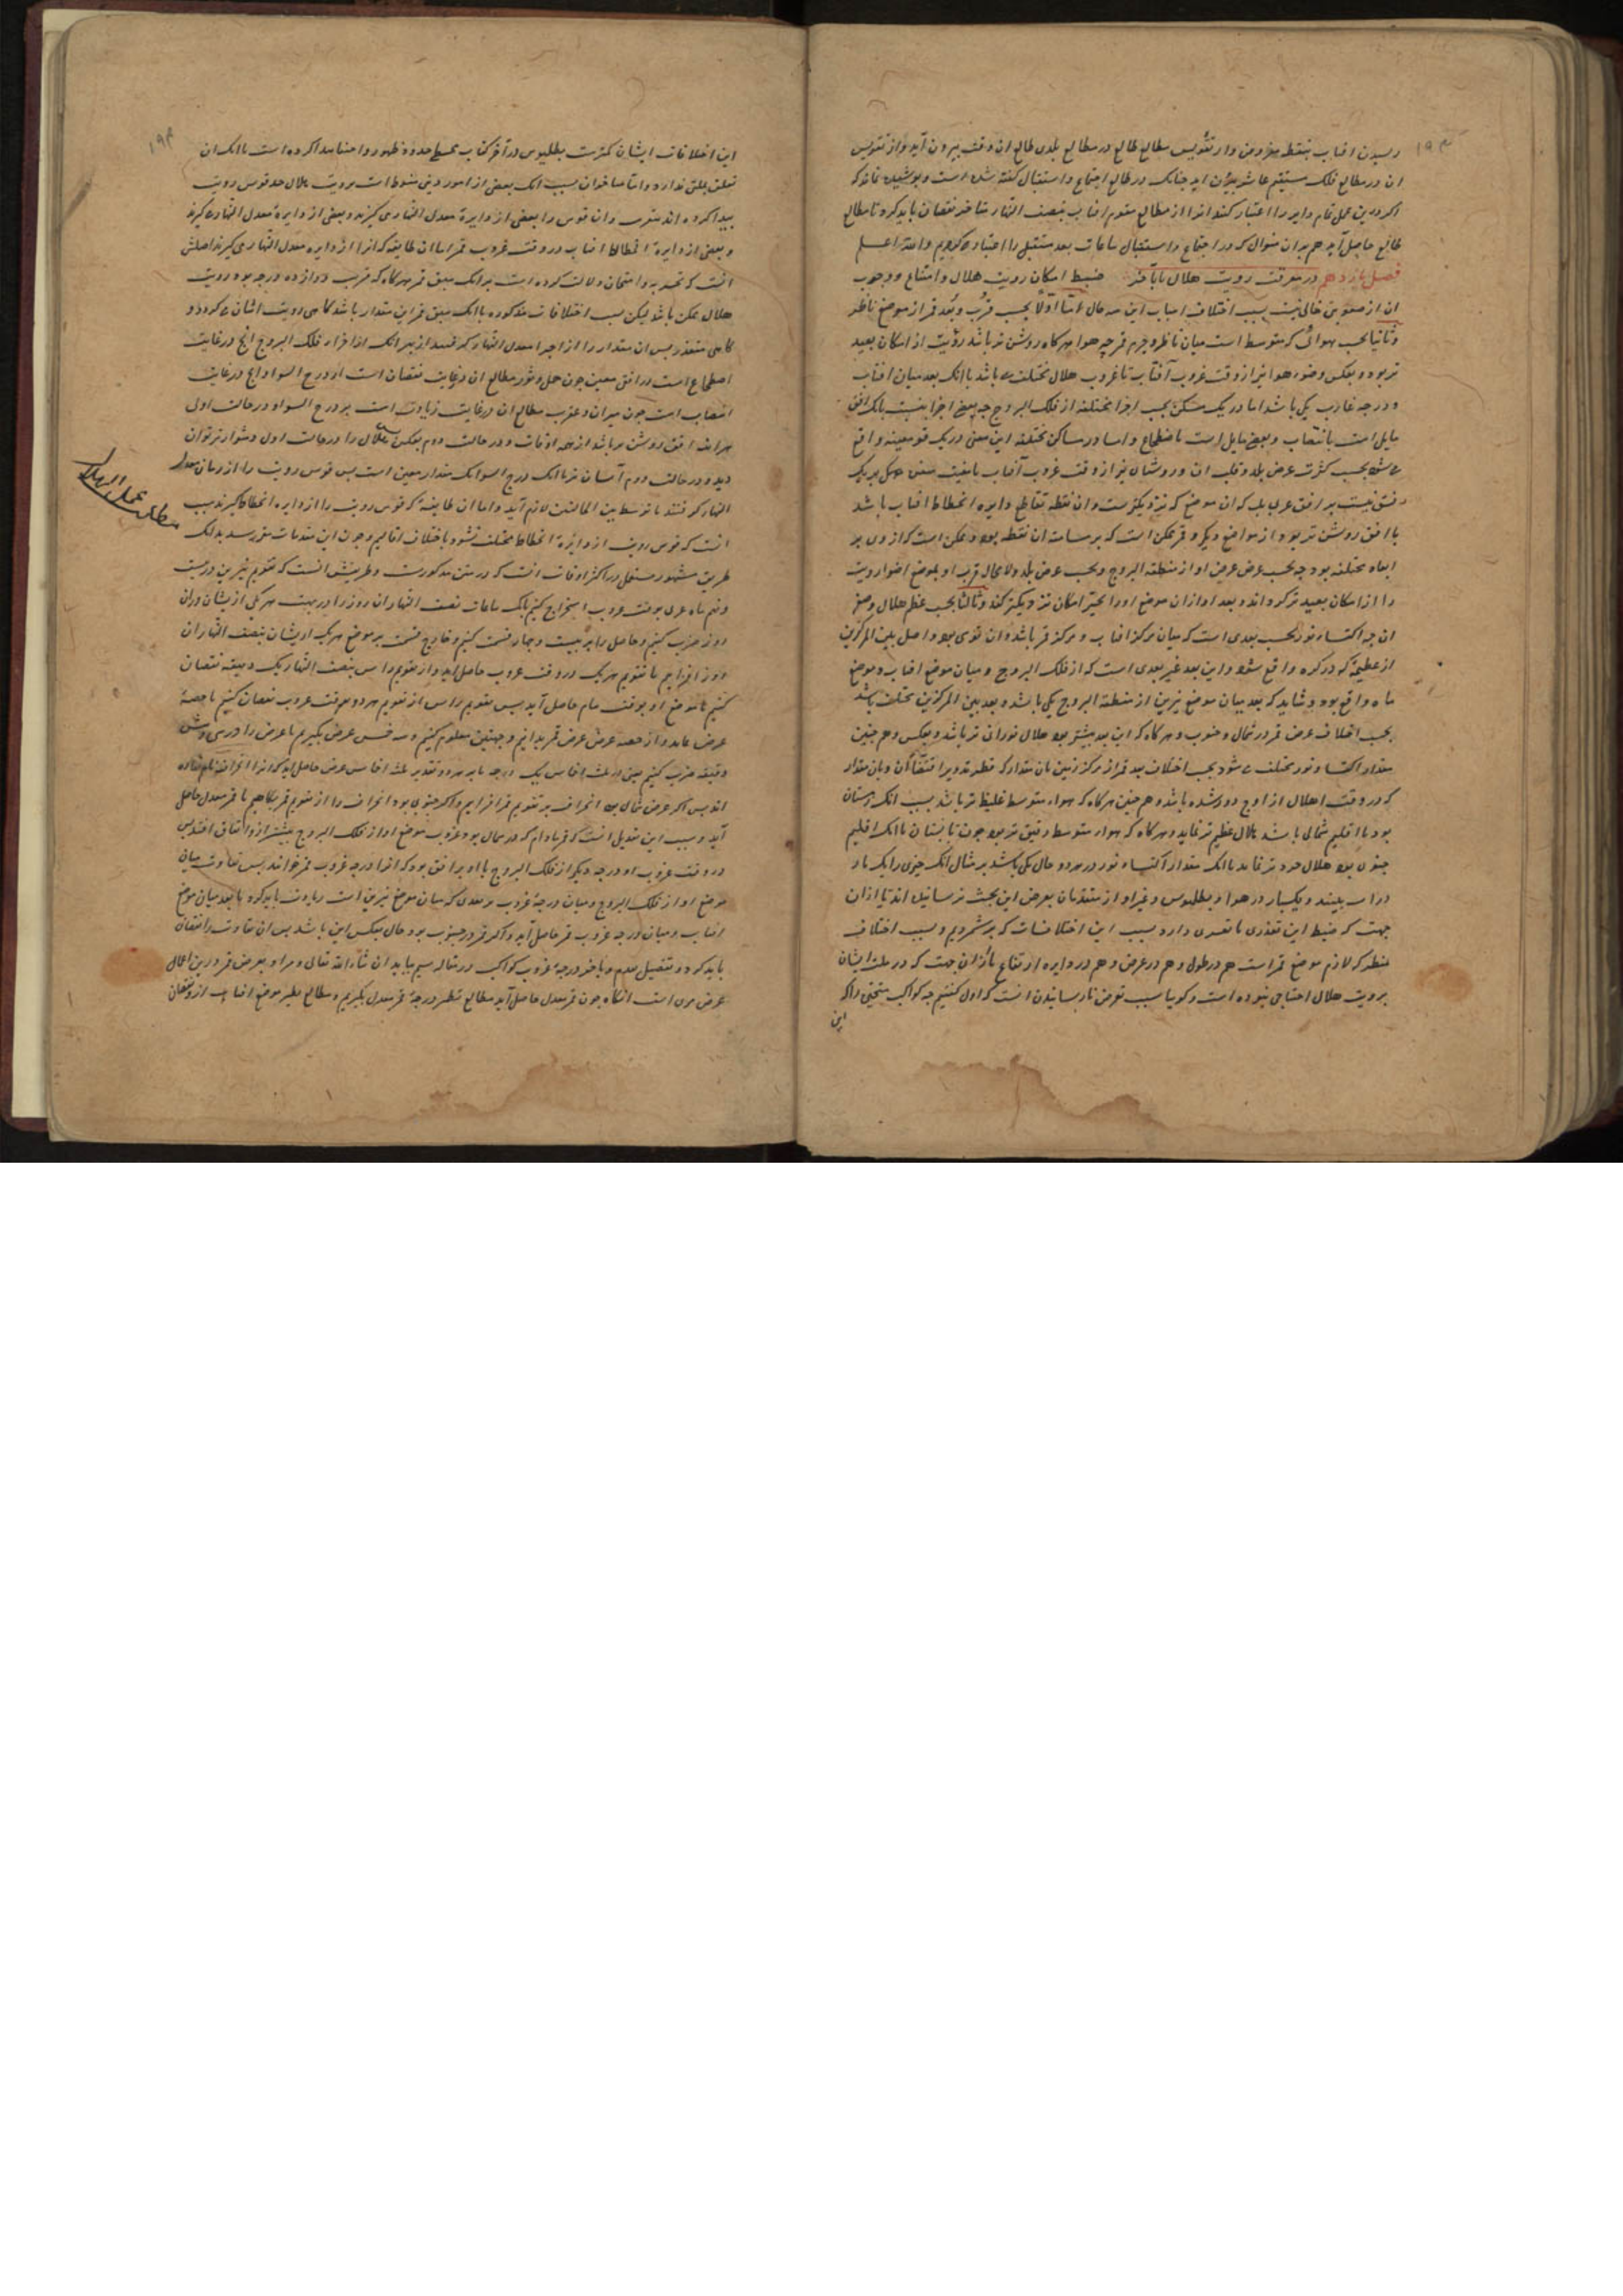 ۱۹۳
رسیدن افتاب بنقطه مفروض و از تقویس مطالع طالع در مطالع بلدی طالع ان وقت بیرون آید و از تقویس
ان در مطالع فلک مستقیم عاشر بیرون اید جنانک در طالع اجتماع و استقبال کفته شده است و بوشیده نماند که
اکر درین عمل تمام دایر را اعتبار کنند انرا از مطالع مقوم افتاب بنصف النهار متاخر نقصان باید کرد تا مطالع
طالع حاصل آید هم بران منوال که در اجتماع و استقبال ساعات بعد مستقبل را اعتبار کردیم والله اعلم
فصل یازدهم در معرفت رویت هلال ضبط امکان رویت هلال و امتناع و وجوب
ان از صعوبتی خالی نیست بسبب اختلاف اسباب این سه حال اما اولا بحسب قرب و بعد قمر از موضع ناظر
وثانیا بحسب هوائی که متوسط است میان ناظر و جرم قمر جه هوا هرکاه روشن تر باشد رؤیت از امکان بعید
تر بود و بعکس وضوء هوا نیز از وقت غروب آفتاب تا غروب هلال مختلف می باشد با انک بعد میان افتاب
و درجه غارب یکی باشد اما در یک مسکن بحسب اجزا مختلفه از فلک البروج جه بعضی اجزا بنسبت با یک افق
مایل است بانتصاب و بعضی مایل است باضطجاع و اما در مساکن مختلفه این معنی در یک قوس معینه واقع
می شود بحسب کثرت عرض بلد و قلت ان و روشنائی نیز از وقت غروب آفتاب تا مغیب شفق
نیست بر افق غربی بلکه ان موضع که نزدیکترست و ان نقطه تقاطع دایره انحطاط افتاب باشد
با افق روشن تر بود از مواضع دیکر و قمر ممکن است که بر مسامته ان نقطه بود و ممکن است که از وی بر
ابعاد مختلفه بود جه بحسب عرض او از منطقه البروج و بحسب عرض بلد و لا محاله قرب او بموضع اضوا رویت
را از امکان بعید تر کرداند و بعد او از ان موضع او را بحیز امکان نزدیکتر کند وثالثا بحسب عظم هلال و صغر
ان جه اکتساء نور بحسب بعدی است که میان مرکز افتاب و مرکز قمر باشد و ان قوسی بود واصل بین المرکزین
از عظیمه که در کره واقع شود و این بعد غیر بعدی است که از فلک البروج و میان موضع افتاب و موضع
ماه واقع بود و شاید که بعد میان موضع نیرین از منطقه البروج یکی باشد و بعد بین المرکزین مختلف باشد
بحسب اختلاف عرض قمر در شمال و جنوب و هرکاه که این بعد بیشتر بود هلال نورانی تر باشد و بعکس و هم جنین
مقدار اکتساء نور مختلف می شود بحسب اختلاف بعد قمر از مرکز زمین بان مقدار که قطر تدویر اقتضا کند و بان مقدار
که در وقت اهلال از اوج دور شده باشد و هم جنین هرکاه که هواء متوسط غلیظ تر باشد بسبب انک زمستان
بود یا اقلیم شمالی باشد هلال عظیم تر نماید و هرکاه که هواء متوسط رقیق تر بود جون تابستان یا انک اقلیم
جنوبی بود هلال خردتر نماید با انک مقدار اکتساء نور در هر دو حال یکی باشد بر مثال انک جیزی را یک بار
در اب ببینند و یکبار در هوا و بطلیوس و غیر او از متقدمان بعرض این بحث نرسانیده اند تا ازان
جهت که ضبط این تعذری یا تعسری دارد بسبب این اختلافات که برشمردیم و بسبب اختلاف
منظر که لازم موضع قمر است هم در طول و هم در عرض و هم در دایره ارتفاع یا از ان جهت که در ملت ایشان
برویت هلال احتیاجی نبوده است و کویا سبب تعرض نارسانیدن انست که اول کفتیم جه کواکب متحیره را که
این
۱۹۴
این اختلافات ایشان کمترست بطلیوس در آخر کتاب مجسطی حدود ظهور و اختفا بیدا کرده است با انک ان
تعلق بملتی ندارد و اما متاخران بسبب انک بعضی از امور دینی منوط است برویت هلال حد قوس رویت
بیدا کرده اند بتقریب و ان قوس را بعضی از دایرهٔ معدل النهار می کیرند و بعضی از دایرهٔ
و بعضی از دایرهٔ انحطاط افتاب در وقت غروب قمر اما ان طایفه که انرا از دایره معدل النهار می کیرند اصلش
انست که تجربه و امتحان دلالت کرده است بر انک میان قمر هرکاه که قریب دوازده درجه بود رویت
هلال ممکن باشد لیکن بسبب اختلافات مذکوره با انک قمر این مقدار باشد کاهی رویت اسان می کردد و
کاهی متعذر بس ان مقدار را از اجزا معدل النهار کرفتند از بهر انک اجزاء فلک البروج انج در غایت
اضطجاع است در افق معین جون حمل و ثور مطالع ان در غایت نقصان است از درج السوا و انج در غایت
انتصاب است جون میزان و عقرب مطالع ان در غایت زیادت است بر درج السوا و در حالت اولی
افق روشن تر باشد از همه اوقات و در حالت دوم بعکس بس هلال را در حالت اول دشوارتر توان
دید و در حالت دوم آسان تر با انک درج السوا یک مقدار معین است بس قوس رویت را از
النهار کرفتند تا توسط بین الحالتین لازم آید و اما ان طایفه که قوس رویت را از دایره انحطاط کیرند سبب
انست که قوس رویت از دایرهٔ انحطاط مختلف نشود باختلاف اقالیم و جون این مقدمات مقرر شد بدانک
طریق مشهور مستعمل در اکثر اوقات انست که در متن مذکورست و طریقش انست که تقویم نیرین در بیست
و نهم ماه عربی بوقت غروب استخراج کنیم
روز ضرب کنیم و حاصل را بر بیست و جهار قسمت کنیم و خارج قسمت بر موضع هر یک ازیشان بنصف النهار ان
روز افزاییم تا تقویم هر یک در وقت غروب حاصل اید و از تقویم راس بنصف النهار یک دقیقه نقصان
کنیم تا موضع او بوقت شام حاصل آید بس تقویم راس از تقویم هر دو بوقت غروب نقصان کنیم تا حصهٔ
عرض بماند و از حصه عرض عرض قمر بدانیم و جهتش معلوم کنیم و سه خمس عرض بکیریم یا عرض را در سی و شش
دقیقه ضرب کنیم
اند بس اکر عرض شمالی بود انحراف بر تقویم قمر افزاییم و اکر جنوبی بود انحراف را از تقویم قمر بکاهیم تا قمر معدل حاصل
آید و سبب این تعدیل انست که قمر مادام که در شمال بود غروب موضع او از فلک البروج بیشتر از و اتفاق افتد بس
در وقت غروب او درجه دیکر از فلک البروج با او بر افق بود که انرا درجه غروب قمر خوانند بس تفاوت میان
موضع او از فلک البروج و میان درجهٔ غروب بر بعدی که میان موضع نیرین است زیادت باید کرد تا بعد میان موضع
افتاب و میان درجه غروب قمر حاصل آید و اکر قمر در جنوب بود حال بعکس این باشد بس ان تفاوت را نقصان
باید کرد و تفصیل درجهٔ غروب کواکب در مقاله سیم بیاید ان شاء الله تعالی و مراد بعرض قمر درین اعمال
عرض مری است انکاه جون قمر معدل حاصل آید مطالع نظیر درجهٔ قمر معدل بکیریم و مطالع نظیر موضع افتاب از و نقصان
مطلب عمل الهلال